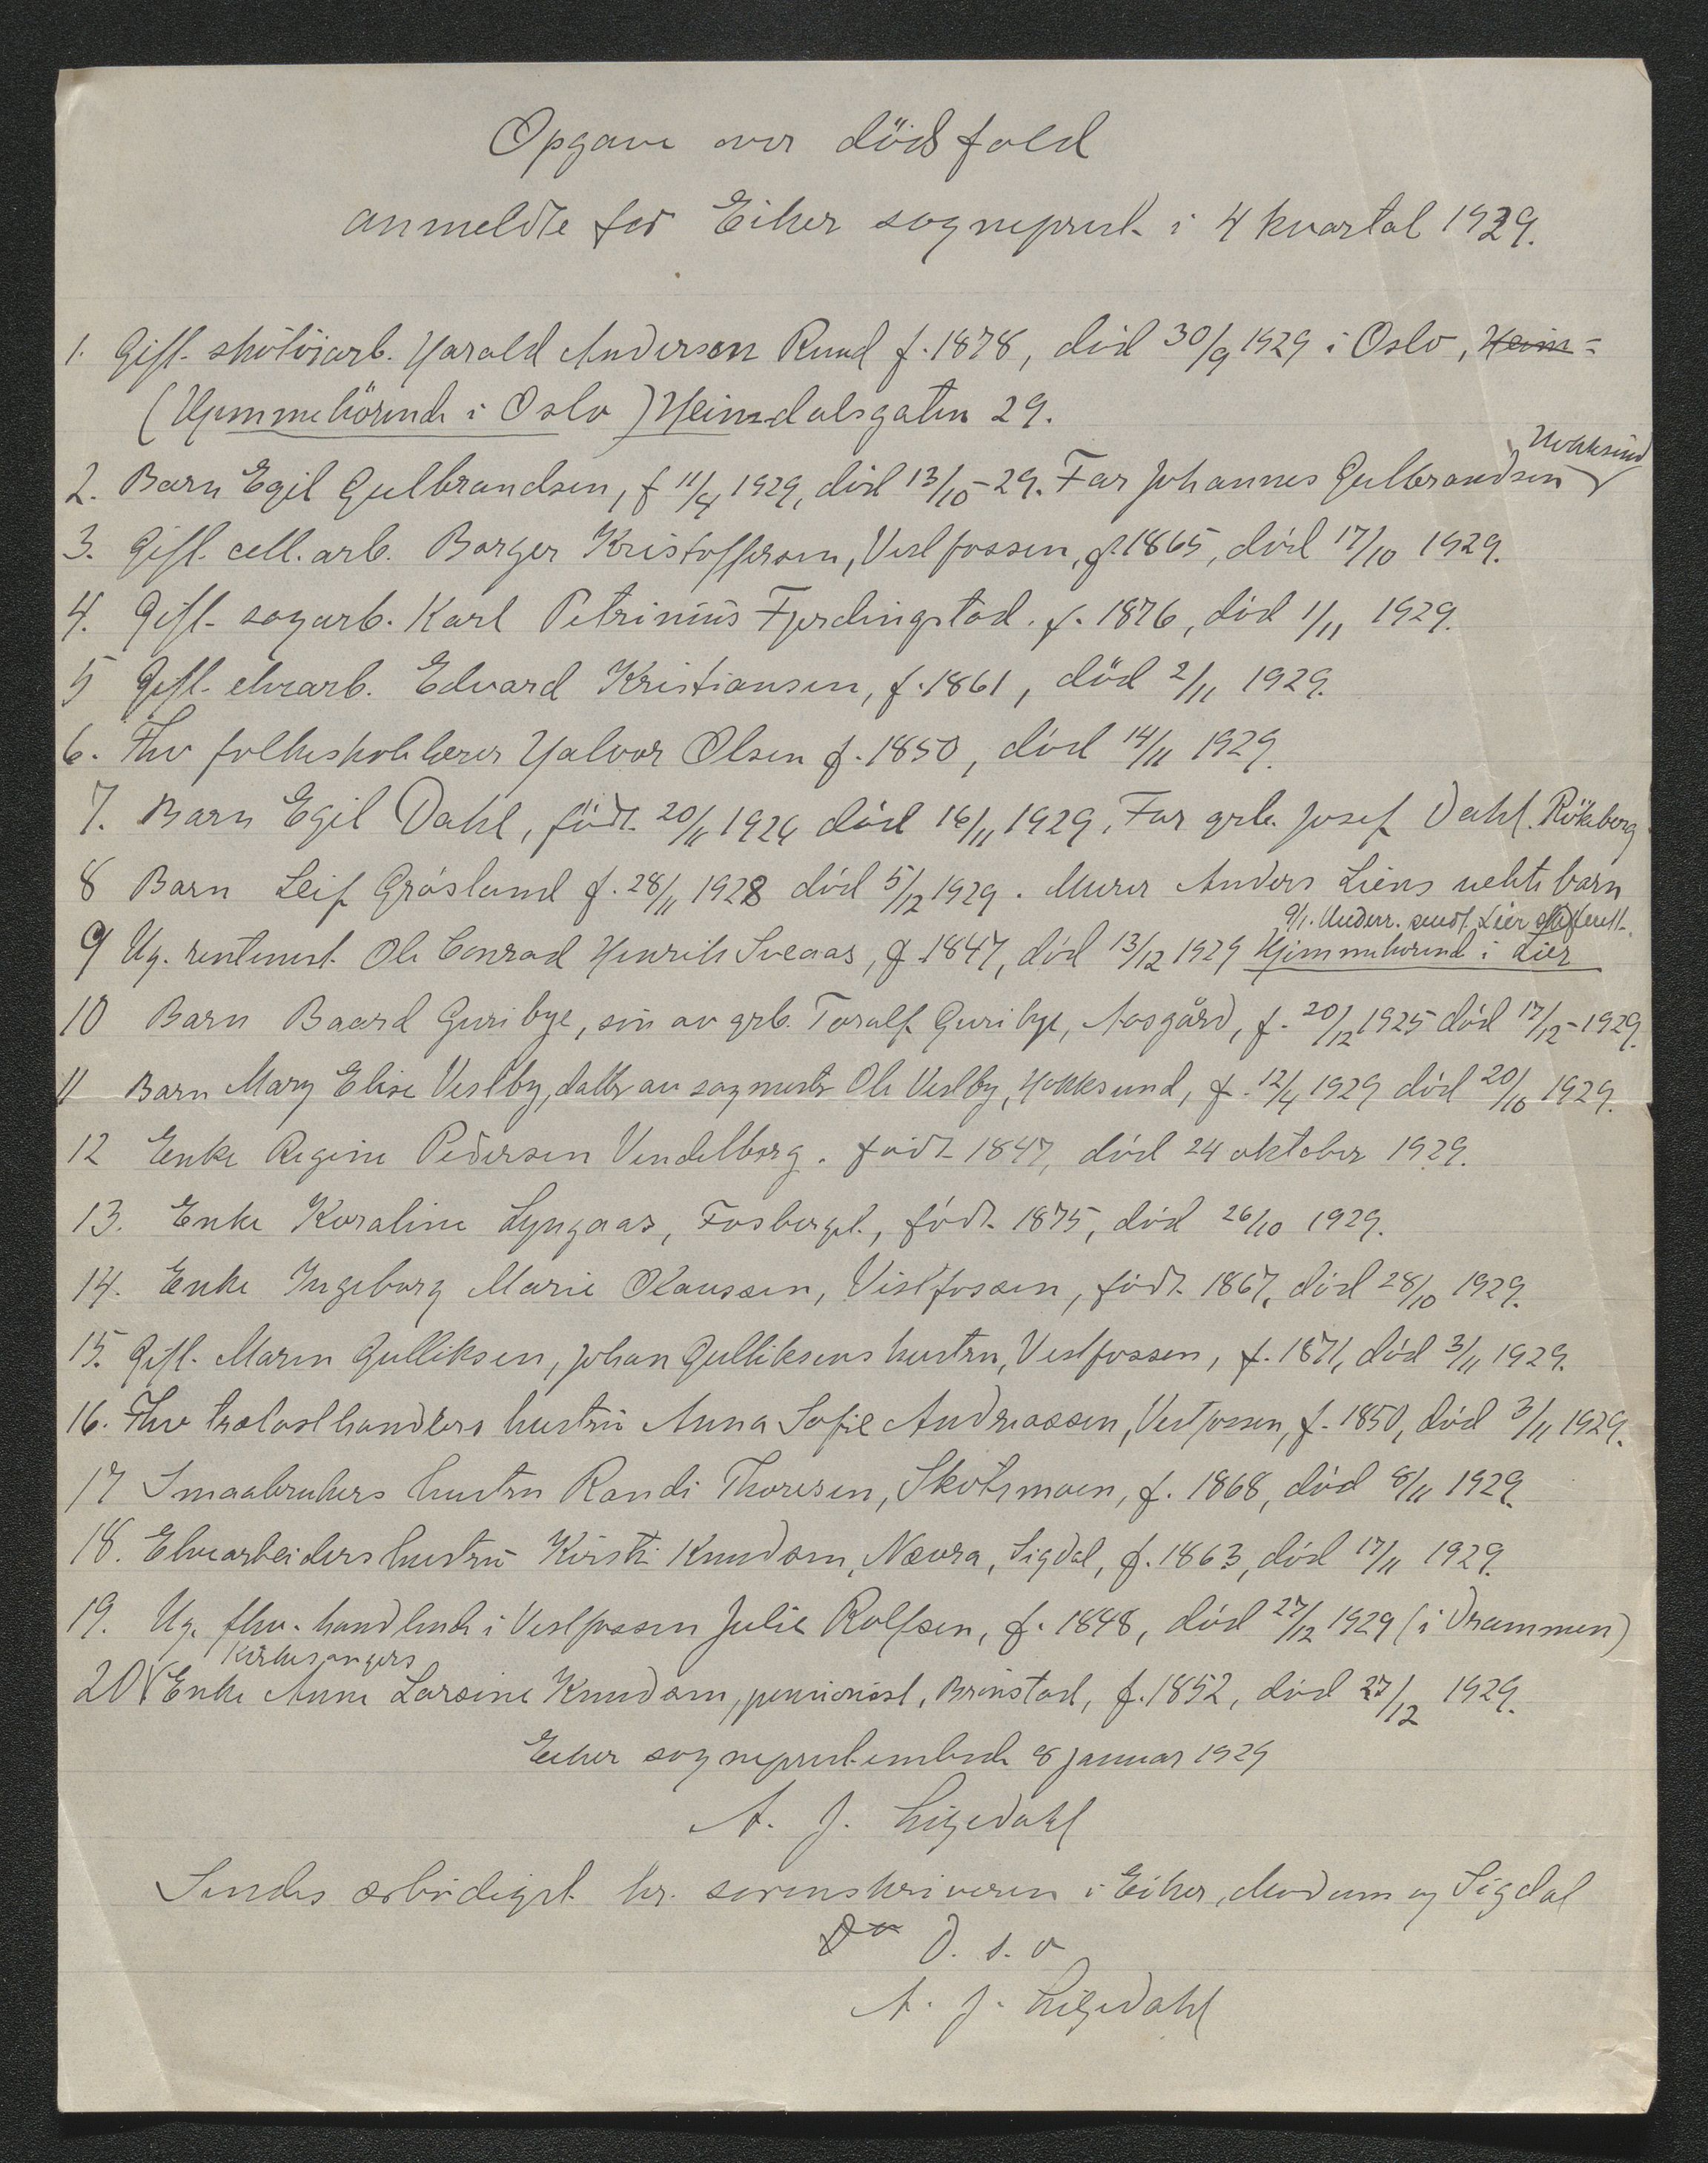 Opgave over dödsfald
anmeldte for Eiker sogneprest i 4 kvartal 1929.
1. Gift. skotöiarb. Harald Andersen Ruud f. 1878, död 30/9 1929 i Oslo, Heim=
(Hjemmehörende i Oslo) Heimdalsgaten 29.
Hokksund
2. Barn Egil Gulbrandsen, f 11/4 1929, död 13/10-29. Far Johannes Gulbrandsen
3. Gift. cell. arb. Borger Kristoffersen, Vestfossen, f. 1865, död 17/10 1929.
4. Gift. sagarb. Karl Petrinius Fjerdingstad. f. 1876, död 1/11 1929.
5 Gift. elvearb. Edvard Kristiansen, f. 1861, död 2/11 1929.
6. Fhv folkeskolelærer Halvor Olsen f. 1850, död 14/11 1929.
7. Barn Egil Dahl, födt 20/11 1926 död 16/11 1929. Far grb. Josef Dahl. Rökeberg
8 Barn Leif Gråsland f. 28/11 1928 död 5/12 1929. Murer Anders Liens uekte barn
9/1. Underr. sendt Lier
9 Ug. rentenist. Ole Conrad Henrik Sveaas, f. 1847, död 13/12 1929 Hjemmehörend i Lier
10 Barn Baard Guribye, sön av grb. Toralf Guribye, Aasgård, f. 20/12 1925 död 17/12-1929.
11 Barn Mary Elise Vestby, datter av sagmester Ole Vestby, Hokksund, f. 12/4 1929 död 20/10 1929.
12 Enke Regine Pedersen Vendelborg. födt 1847, död 24 oktober 1929.
13. Enke Karoline Lyngaas, Fosbergd., födt 1875, död 26/10 1929.
14. Enke Ingeborg Marie Olaussen, Vestfossen, födt 1867, död 28/10 1929.
15. Gift. Maren Gulliksen, Johan Gulliksens hustru, Vestfossen, f. 1871, död 3/11 1929.
16. Fhv trælasthandlers hustru Anna Sofie Andreassen, Vestfossen, f. 1850, död 3/11 1929.
17 Smaabrukers hustru Randi Thoresen, Skotsmoen, f. 1868, död 8/11 1929.
18. Elvearbeiders hustru Kirsti Knudsen, Nævra, Sigdal, f. 1863, död 17/11 1929.
19. Ug. fhv. handlende i Vestfossen Julie Rolfsen, f. 1848, död 27/12 1929 (i Drammen)
Kirkesangers
20 Enke Anne Larsine Knudsen, pensionist, Brunstad, f. 1852, död 27/12 1929.
Eiker sogneprestembede 8 januar 1929
A. J. Ligedahl
Sendes ærbödigst hr. sorenskriveren i Eiker, Modum og Sigdal
D. s. o
A. J. Ligedahl